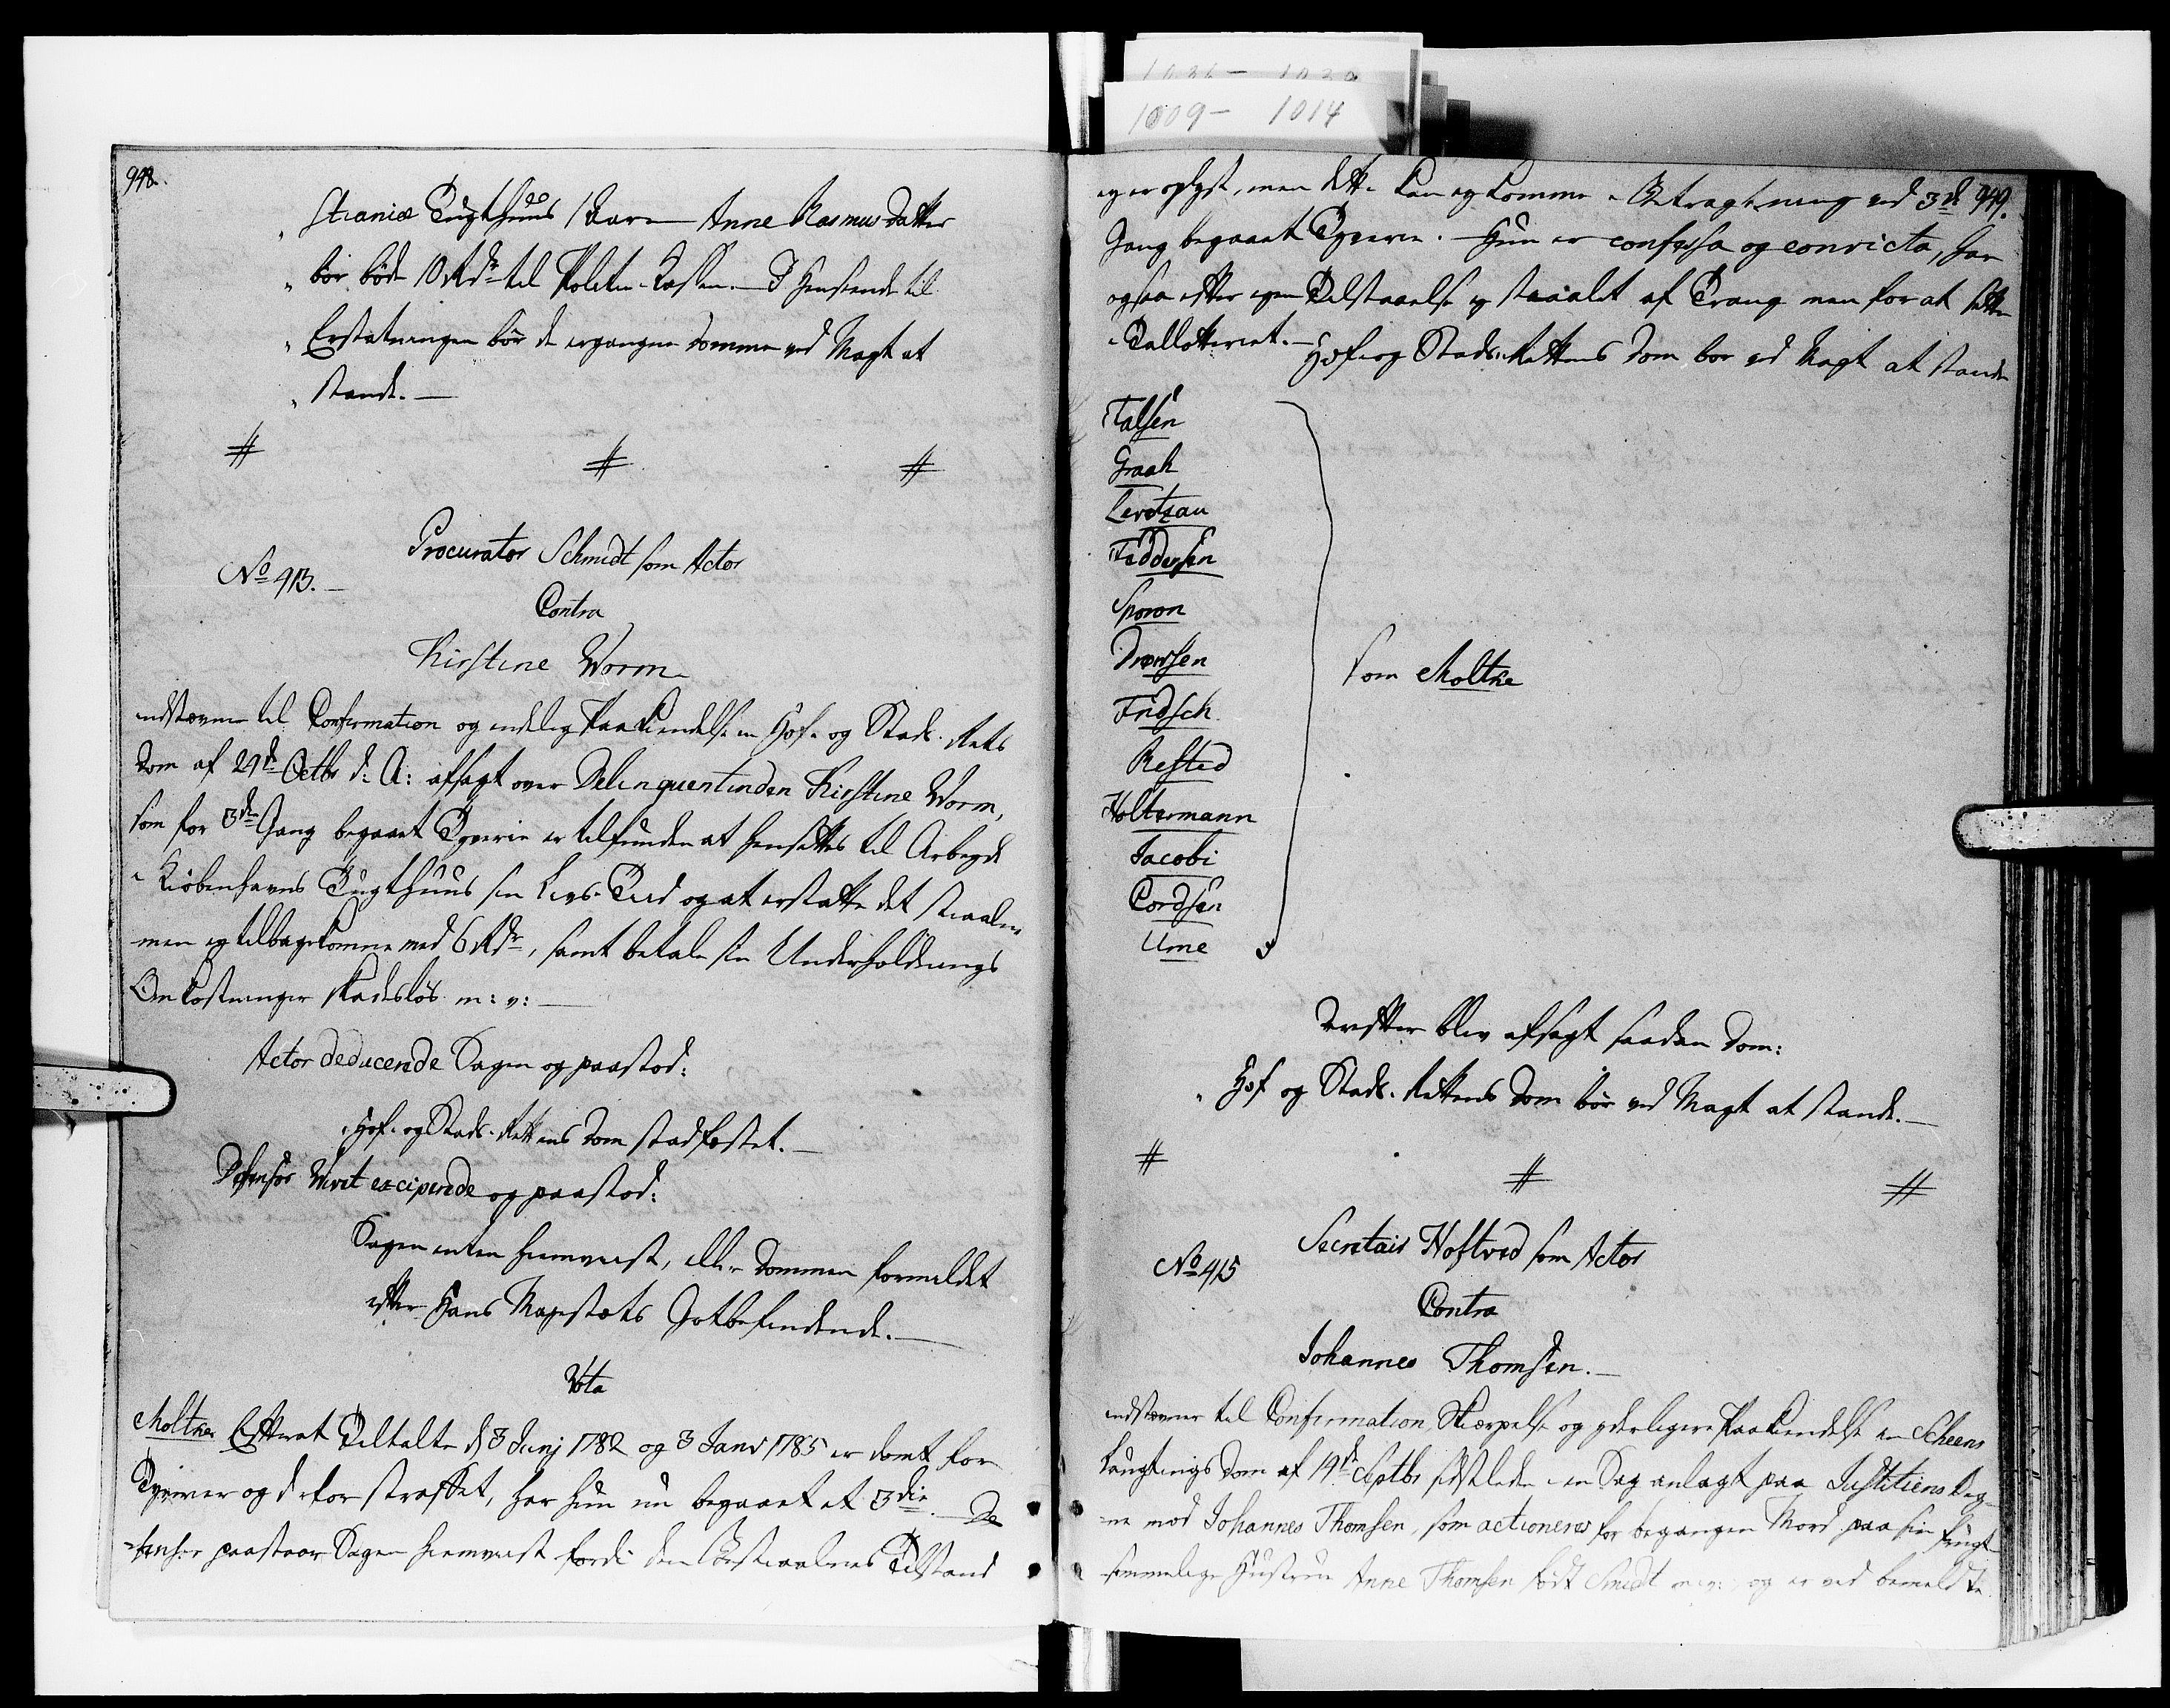 1036 - 1030
1009 - 1014
948.
" stianiæ Tugthuus 1 Aar. — Anne Rasmusdatter
" bör böde 10 Rdr. til Politie-Kassen. — I Henseende til
" Erstatningen bör de ergangne Domme ved Magt at
" stande. —
# # #
Procurator Schmidt som Actor
No 413. —
Contra
Kirstine Worm
indstævner til Confirmation og endelig Paakiendelse en Hof- og Stads-Rets
Dom af 29de Octbr d: A: afsagt over Delinquentinden Kirstine Worm,
som for 3die Gang begaaet Tyverie er tilfunden at hensættes til Arbeyde
i Kiöbenhavns Tugthuus sin Livs-Tiid og at erstatte det stiaalne
men ey tilbagekomne med 6 Rdr, samt betale sin Underholdnings
Omkostninger skadeslös m: v: —
Actor deducerede Sagen og paastod:
Hof- og Stads-Rettens Dom stadfæstet. —
Defensor Wivet exciperede og paastod:
Sagen enten hiemviist, eller Dommen formildet
efter Hans Majestæts Gotbefindende. —
Vota
Moltke Efterat Tiltalte d 3 Junj 1782 og 3 Janv 1785 er dömt for
Tyverier og derfor straffet, har hun nu begaaet et 3die. — De
=fensor paastaaer Sagen hiemviist fordi den Bestiaalnes Tilstand
949.
ey er oplyst, men dette kan ey komme i Betragtning ved 3de
Gang begaaet Tyverie. — Hun er confessa og convicta, har
ogsaa efter egen Tilstaaelse ey stiaalet af Trang men for at sætte
i Tallotteriet. — Hof- og Stads-Rettens Dom bör ved Magt at stande
Falsen
Graah
Levetzau
Feddersen
Sporon
Drewsen
som Moltke
Fridsch
Refsted
Holtermann
Jacobi
Cordsen
Ume
Derefter blev afsagt saadan Dom:
" Hof og Stads-Rettens Dom bör ved Magt at stande. —
# # #
Secretair Hoftved som Actor
No 415
Contra
Johannes Thomsen. —
indstævner til Confirmation, Skiærpelse og yderligere Paakiendelse en Scheens
Laugtings Dom af 19de Septbr sidstleden i en Sag anlagt paa Justitiens Veg-
ne mod Johannes Thomsen, som actioneres for begangen Mord paa sin frugt-
sommelige Hustrue Anne Thomsen födt Smedt m: v: og er ved bemeldte